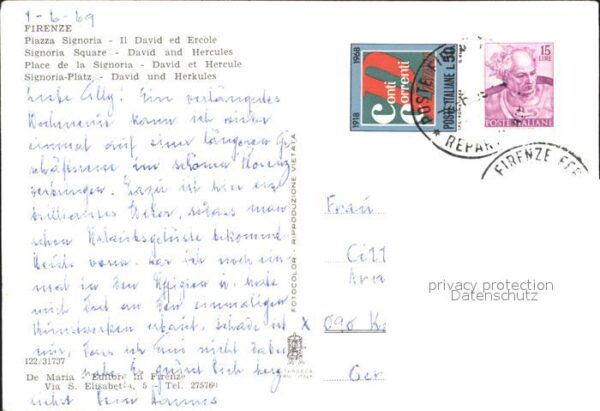 1-6-69
FIRENZE
Piazza Signoria - Il David ed Ercole
Signoria Square - David and Hercules
Place de la Signoria - David et Hercule
Signoria-Platz - David und Herkules
Liebe Cilly! Ein verlängertes
Wochenende kann ich wieder
einmal auf einer längeren Ge
schäftsreise im schönen Florenz
verbringen. Dazu ist hier ein
brillantes Wetter, sodass man
schon Urlaubsgelüste bekommt
war ich noch ein
mal in den Uffizien u. habe
mich dort an den einmaligen
Kunstwerken erbaut. Schade ist
nur, dass ich Euni nicht dabei
habe. Es grüsst Dich herz
lichst Dein Hannes
122/31737
De Maria - Editore in Firenze
Via S. Elisabetta, 5 - Tel. 275760
FOTOCOLOR - RIPRODUZIONE VIETATA
1918
1968
Conti
Correnti
POSTE ITALIANE L.50
15
LIRE
POSTE ITALIANE
POSTE
REPAR
FIRENZE FER
Frau
Cill
privacy protection
Datenschutz
X 090 K
Ger